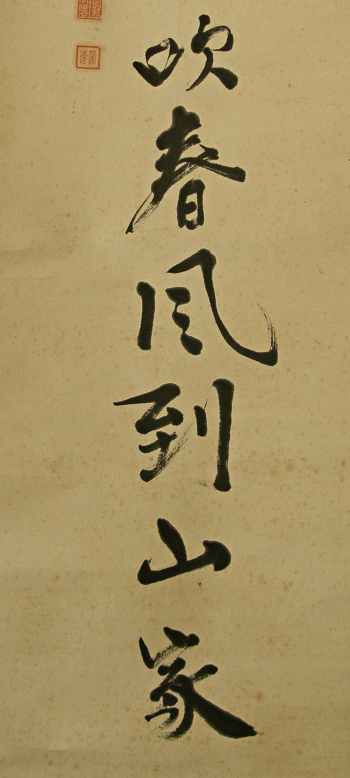 吹春風到山家